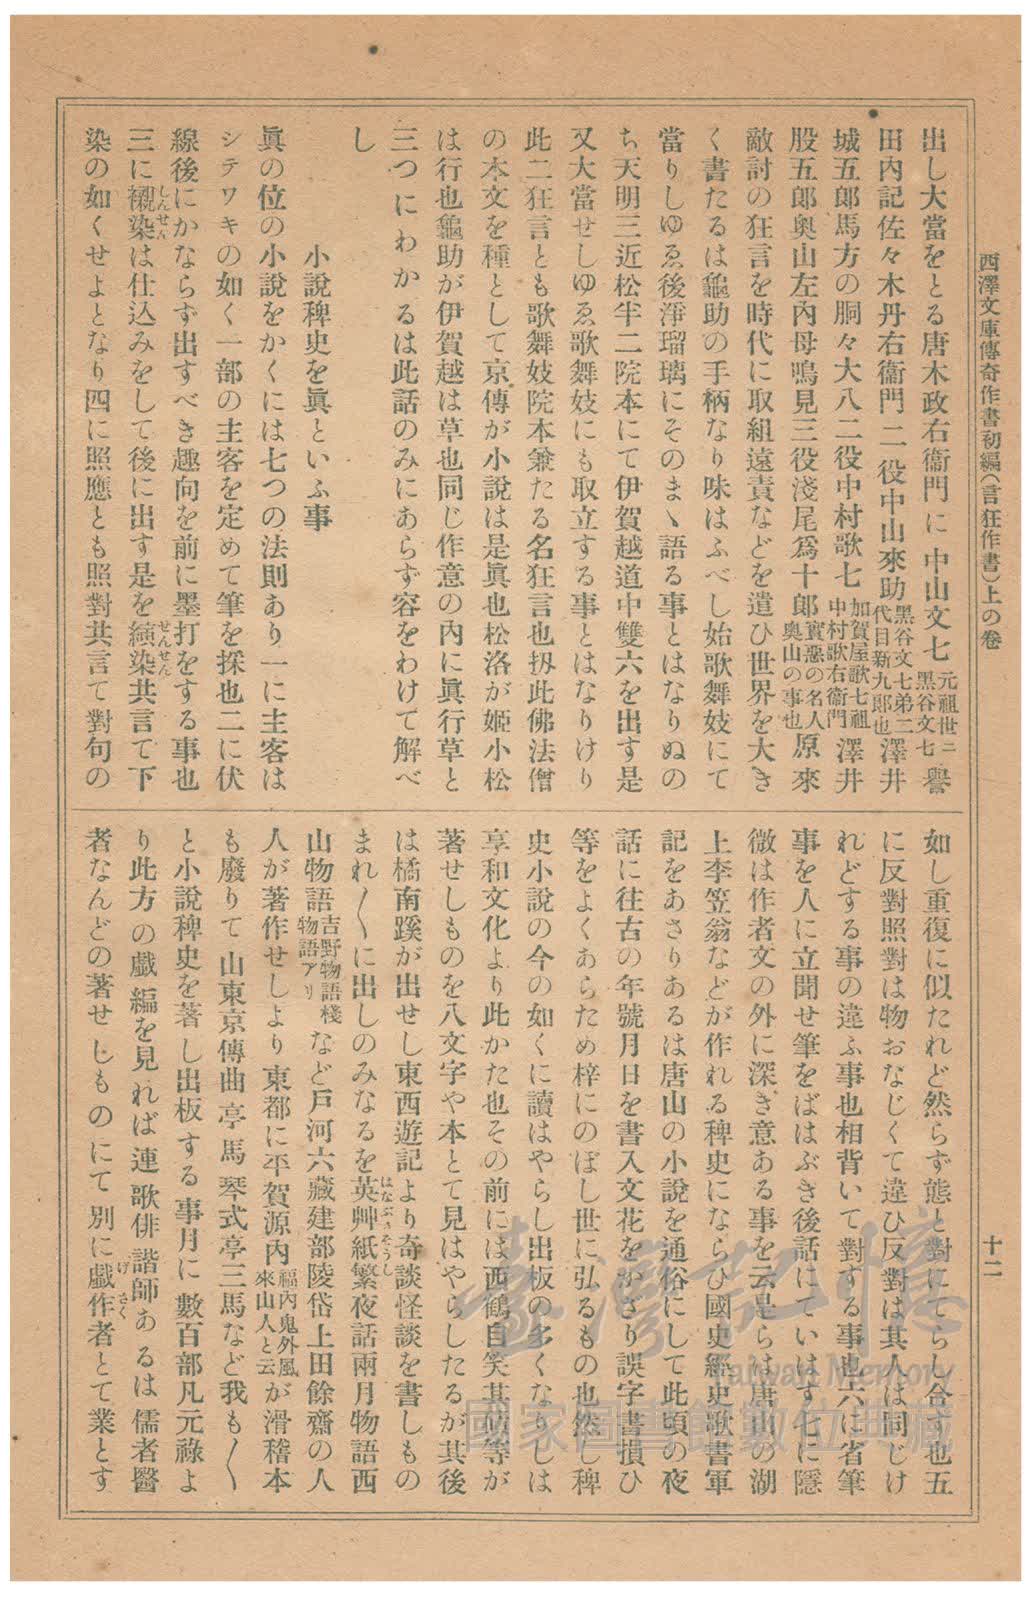 西澤文庫傳奇作書初編(言狂作書)上の卷
十二
出し大當をとる唐木政右衞門に中山文七元祖世ニ黑谷文七譽
田內記佐々木丹右衞門二役中山來助黑谷文七弟二代目新九郎也澤井
城五郎馬方の胴々大八二役中村歌七加賀屋歌七祖中村歌右衞門澤井
股五郎奧山左內母鳴見三役淺尾爲十郎實惡の名人奧山の事也原來
敵討の狂言を時代に取組遠責などを遣ひ世界を大き
く書たるは龜助の手柄なり味はふべし始歌舞妓にて
當りしゆゑ後淨瑠璃にそのまゝ語る事とはなりぬの
ち天明三近松半二院本にて伊賀越道中雙六を出す是
又大當せしゆゑ歌舞妓にも取立する事とはなりけり
此二狂言とも歌舞妓院本兼たる名狂言也扨此佛法僧
の本文を種として京傳が小說は是眞也松洛が姬小松
は行也龜助が伊賀越は草也同じ作意の內に眞行草と
三つにわかるは此話のみにあらず容をわけて解べ
し
小說稗史を眞といふ事
眞の位の小說をかくには七つの法則あり一に主客は
シテワキの如く一部の主客を定めて筆を採也二に伏
線後にかならず出すべき趣向を前に墨打をする事也
三に襯染しんせんは仕込みをして後に出す是を縯染せんせん共言て下
染の如くせよとなり四に照應とも照對共言て對句の
如し重復に似たれど然らず態と對にてらし合す也五
に反對照對は物おなじくて違ひ反對は其人は同じけ
れどする事の違ふ事也相背いて對する事也六に省筆
事を人に立聞せ筆をばはぶき後話にていはす七に隱
微は作者文の外に深き意ある事を云是らは唐山の湖
上李笠翁などが作れる稗史にならひ國史經史歌書軍
記をあさりあるは唐山の小說を通俗にして此頃の夜
話に往古の年號月日を書入文花をかざり誤字書損ひ
等をよくあらため梓にのぼし世に弘るもの也然し稗
史小說の今の如くに讀はやらし出板の多くなりしは
享和文化より此かた也その前には西鶴自笑其磧等が
著せしものを八文字や本とて見はやらしたるが其後
は橘南蹊が出せし東西遊記より奇談怪談を書しもの
まれ〱に出しのみなるを英艸紙はなぶさそうし繁夜話雨月物語西
山物語吉野物語棧物語アリなど戸河六藏建部陵岱上田餘齋の人
人が著作せしより東都に平賀源內福內鬼外風來山人と云が滑稽本
も廢りて山東京傳曲亭馬琴式亭三馬など我も〱
と小說稗史を著し出板する事月に數百部凡元祿よ
り此方の戲編を見れば連歌俳諧師あるは儒者醫
者なんどの著せしものにて別に戲作げさく者とて業とす